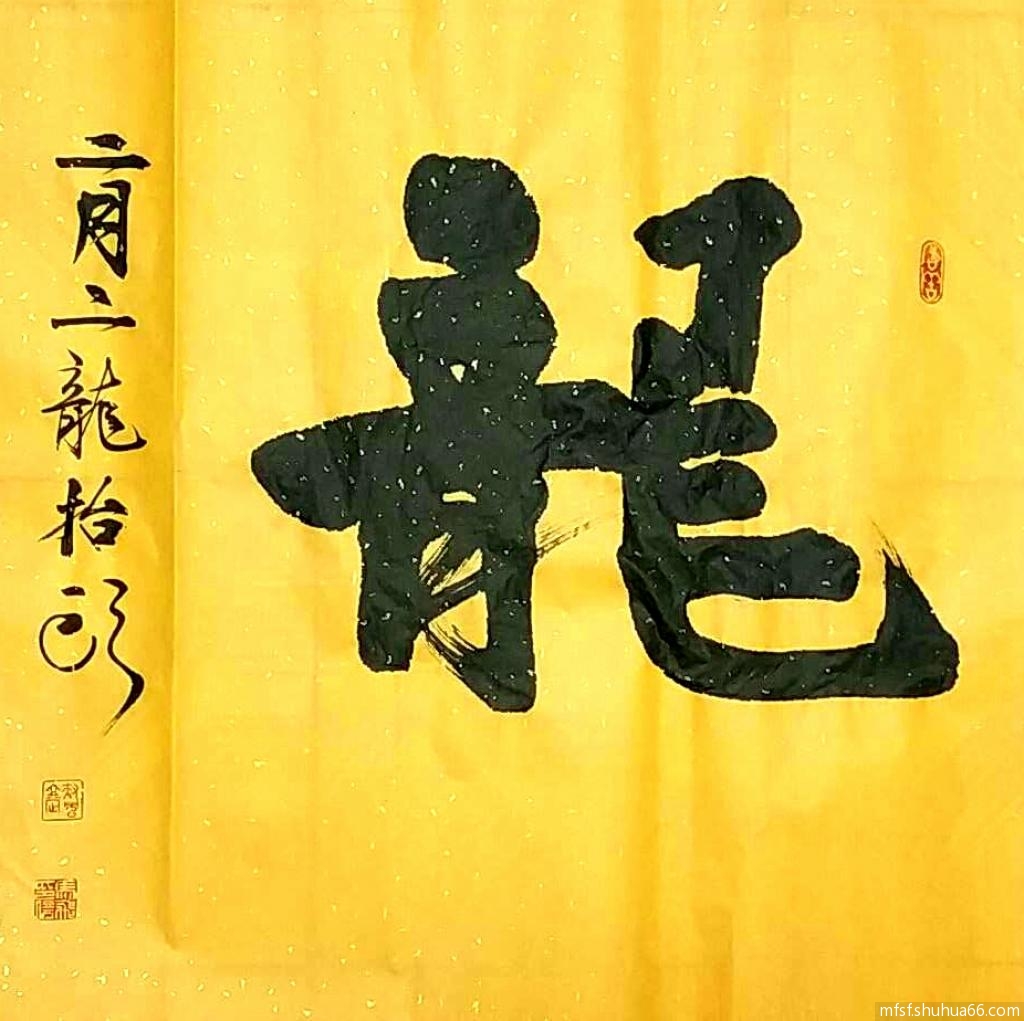 龍
二月二龍抬頭
mfsf.shuhua66.com